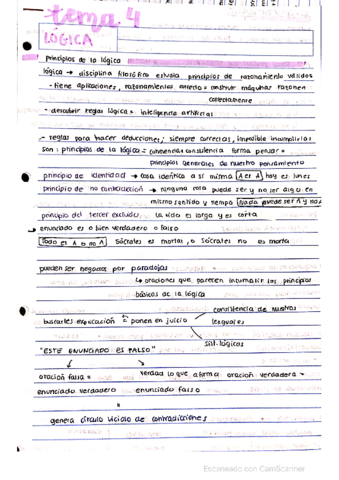 tema 4
LÓGICA
principios de la lógica
lógica → disciplina filosófica estudia principios de razonamiento válidos
- tiene aplicaciones, razonamientos correcto = construir máquinas razonen
correctamente
- descubrir reglas lógica = inteligencia artificial
- reglas para hacer deducciones; siempre correctas, imposible incumplirlas
son: principios de la lógica = consistencia forma pensar =
principios generales de nuestro pensamiento
principio de identidad → cosa idéntica a sí misma A es A hoy es lunes
principio de no contradicción → ninguna cosa puede ser y no ser algo en
mismo sentido y tiempo Nada puede ser A y no A
principio del tercer excluido La vida es larga y es corta
enunciado es o bien verdadero o falso
Todo es A o no A Sócrates es mortal o Sócrates no es mortal
pueden ser negados por paradojas
↳ oraciones que parecen incumplir los principios
básicos de la lógica
consistencia de nuestros
buscarles explicación = ponen en juicio
lenguajes
sist. lógicos
"ESTE ENUNCIADO ES FALSO"
oración falsa = verdad lo que afirma oración verdadera =
enunciado verdadero enunciado falso
=
genera círculo vicioso de contradicciones
Escaneado con CamScanner